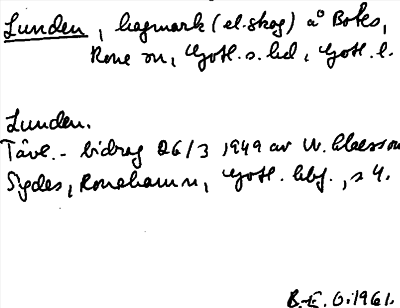 Lunden, hagmark (el. skog) å Botes,
Rone sn, Gotl. s. hd, Gotl. l.
Lunden.
Tävl.- bidrag 26/3 1949 av W. Claesson
Sigdes, Ronehamn, Gotl. hbf., s 4.
B. E. O. 1961.